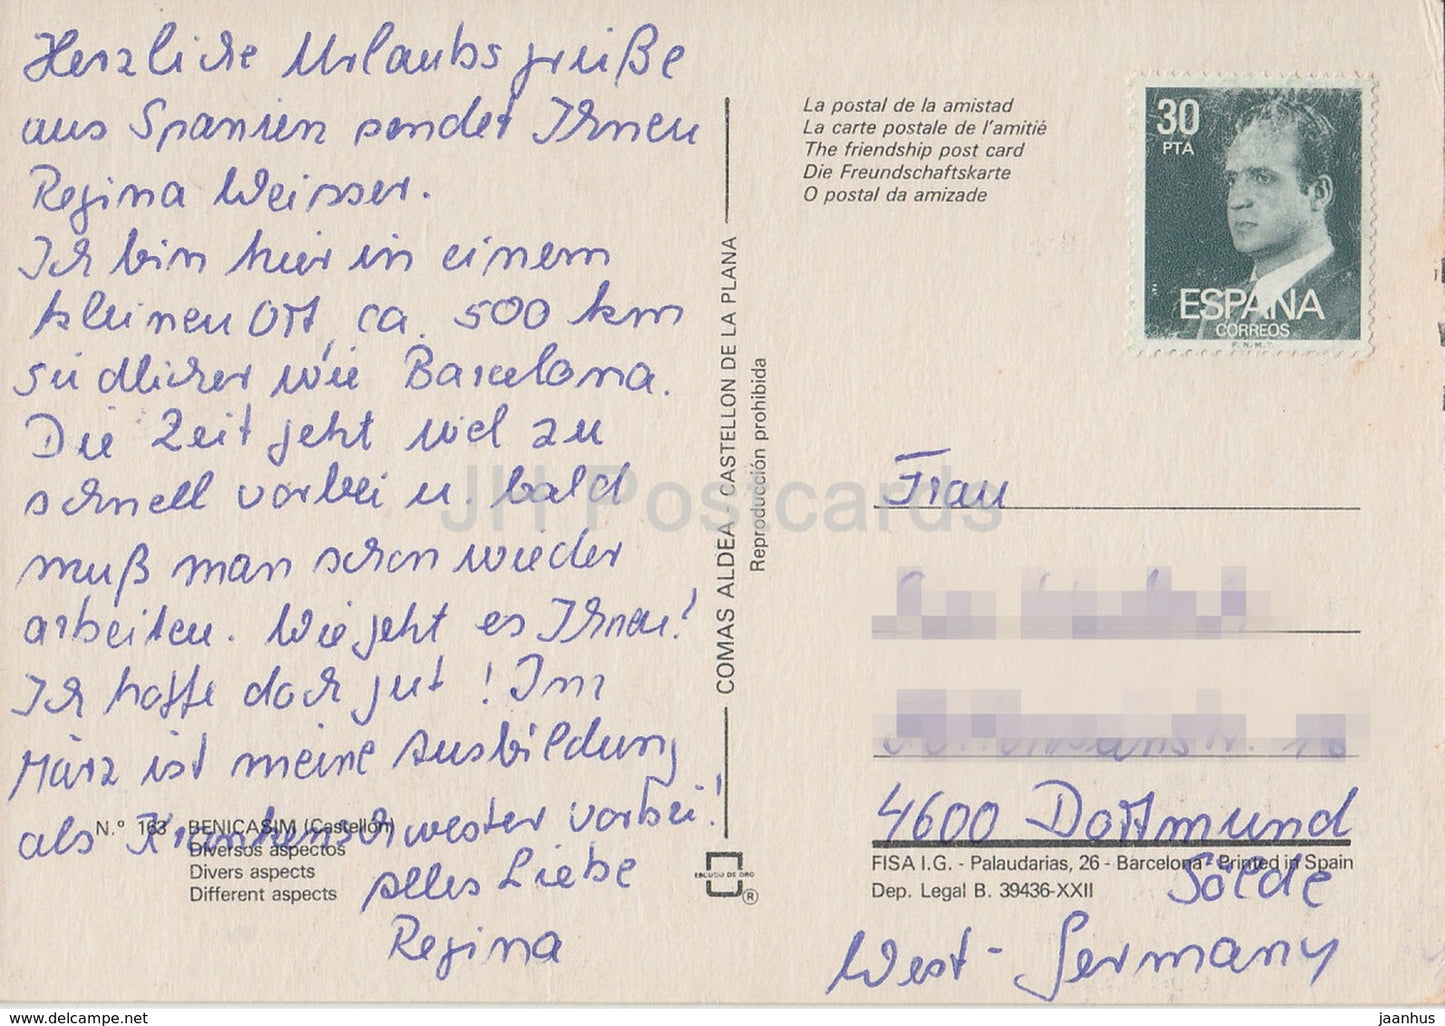 Herzliche Urlaubsgrüße
aus Spanien sendet Ihnen
Regina Weisser.
Ich bin hier in einem
kleinen Ort, ca. 500 km
südlicher wie Barcelona.
Die Zeit geht viel zu
schnell vorbei u. bald
muß man schon wieder
arbeiten. Wie geht es Ihnen!
Ich hoffe doch gut! Im
März ist meine Ausbildung
als Krankenschwester vorbei!
Alles Liebe
Regina
N.º 163 BENICASIM (Castellón)
Diversos aspectos
Divers aspects
Different aspects
COMAS ALDEA CASTELLON DE LA PLANA
Reproducción prohibida
ESCUDO DE ORO
®
La postal de la amistad
La carte postale de l'amitié
The friendship post card
Die Freundschaftskarte
O postal da amizade
30
PTA
ESPAÑA
CORREOS
F.N.M.T.
Frau
4600 Dortmund
Sölde
West-Germany
FISA I.G. - Palaudarias, 26 - Barcelona - Printed in Spain
Dep. Legal B. 39436-XXII
JH Postcards
www.delcampe.net
jaanhus